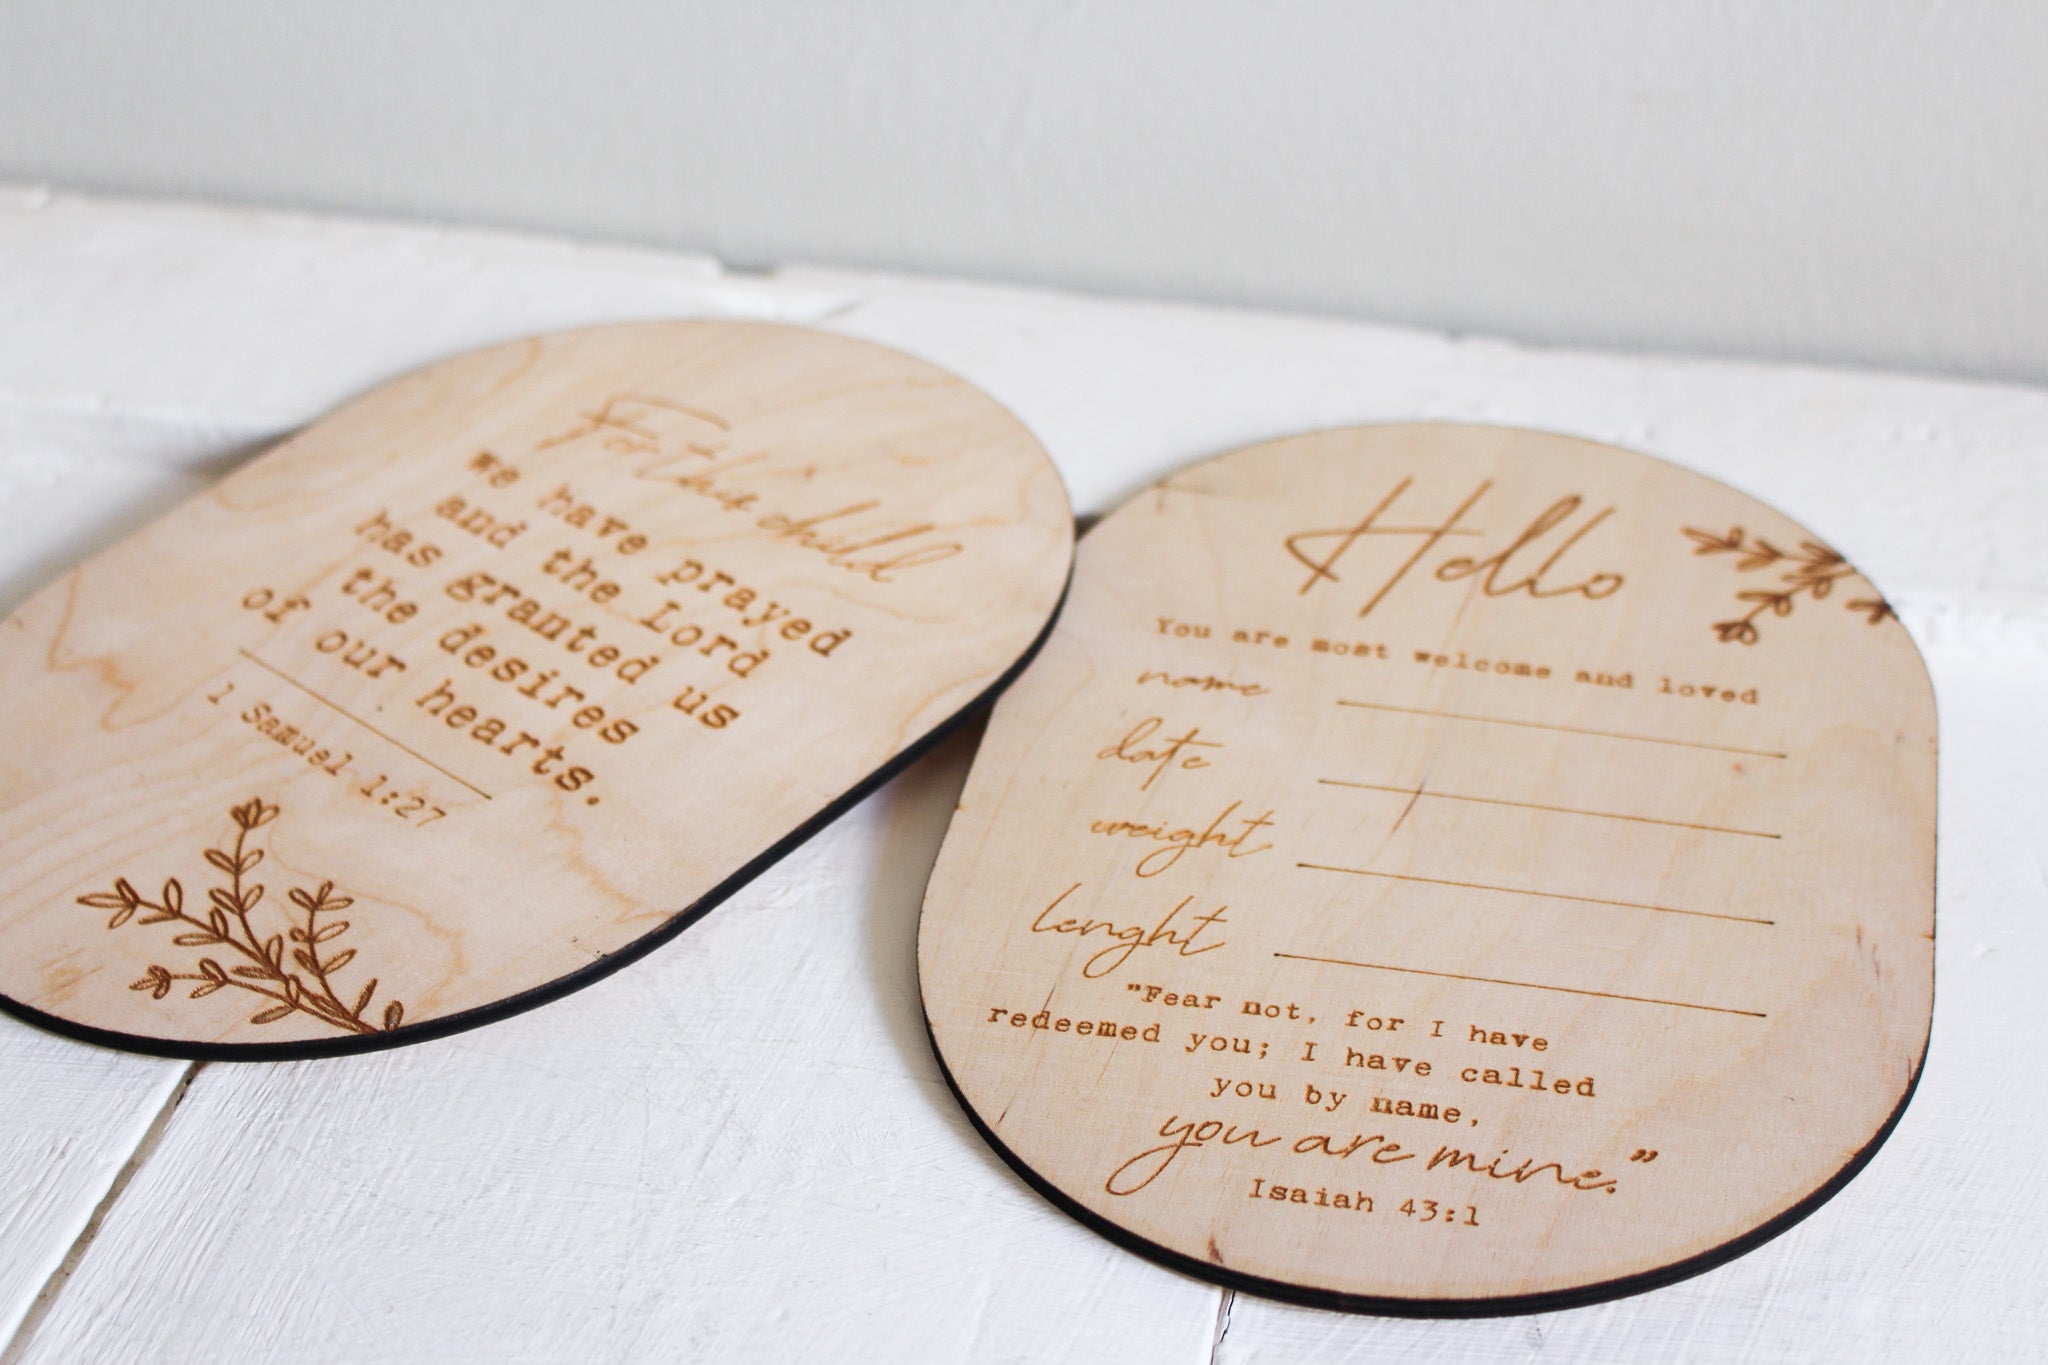 For this child
we have prayed
and the Lord
has granted us
the desires
of our hearts.
1 Samuel 1:27
Hello
You are most welcome and loved
name
date
weight
lenght
"Fear not, for I have
redeemed you; I have called
you by name,
you are mine."
Isaiah 43:1